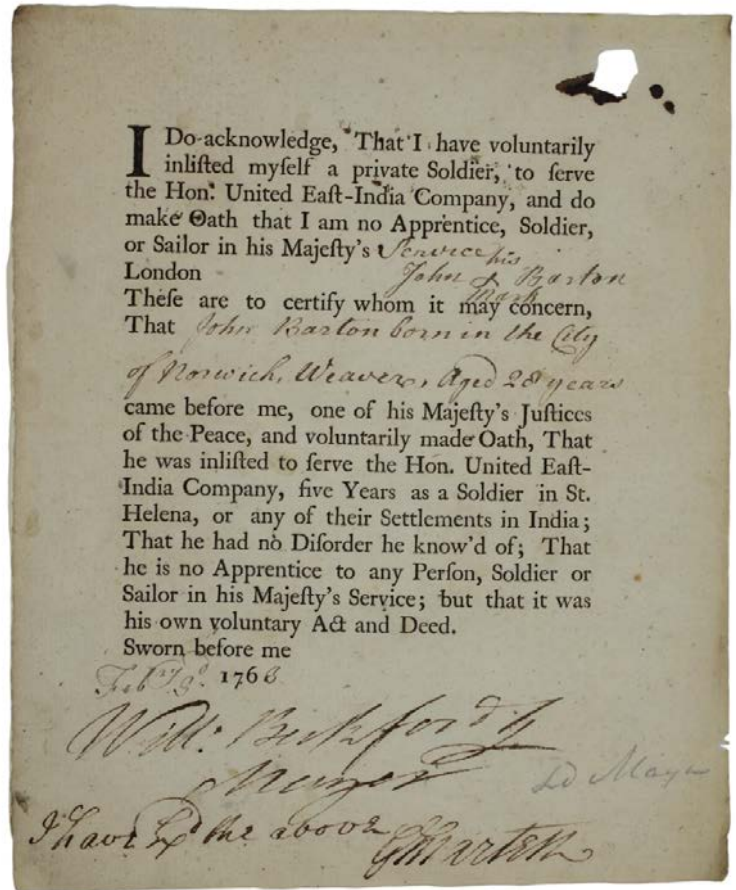 I Do acknowledge, That I have voluntarily
inliſted myſelf a private Soldier, to ſerve
the Hon. United Eaſt-India Company, and do
make Oath that I am no Apprentice, Soldier,
or Sailor in his Majeſty's Service
his
London John Barton
mark
Theſe are to certify whom it may concern,
That John Barton born in the City
of Norwich, Weaver, Aged 28 years
came before me, one of his Majeſty's Juſtices
of the Peace, and voluntarily made Oath, That
he was inliſted to ſerve the Hon. United Eaſt-
India Company, five Years as a Soldier in St.
Helena, or any of their Settlements in India;
That he had no Diſorder he know'd of; That
he is no Apprentice to any Perſon, Soldier or
Sailor in his Majeſty's Service; but that it was
his own voluntary Act and Deed.
Sworn before me
Feb 1763
Will: Beckford
Mayor
Ld Mayor
I have the above